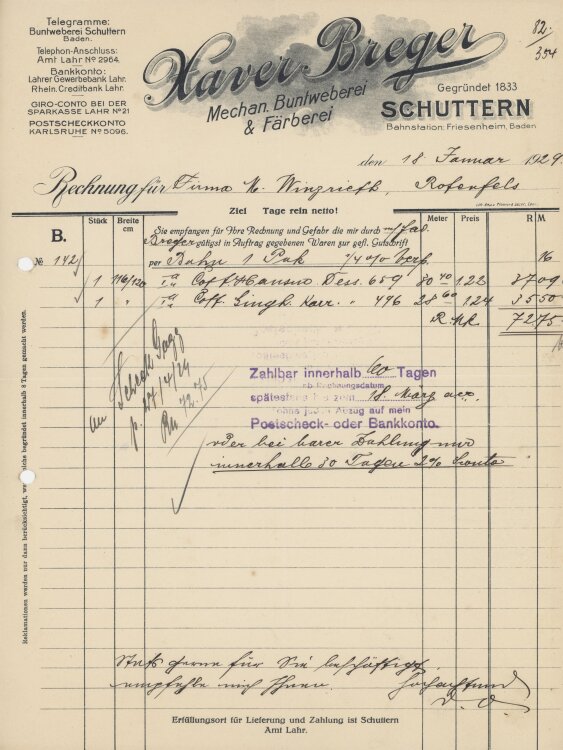 Telegramme:
Buntweberei Schuttern
Baden.
Telephon-Anschluss:
Amt Lahr No 2964.
Bankkonto:
Lahrer Gewerbebank Lahr.
Rhein. Creditbank Lahr.
GIRO-CONTO BEI DER
SPARKASSE LAHR No 21
POSTSCHECKKONTO
KARLSRUHE No 5096.
Xaver Breger
Mechan. Buntweberei
& Färberei
Gegründet 1833
SCHUTTERN
Bahnstation: Friesenheim, Baden
82
354
den 18 Januar 1929.
Rechnung für Firma M. Winzrieth, Rotenfels
Ziel Tage rein netto!
B.
Stück Breite cm Meter Preis R M
Sie empfangen für Ihre Rechnung und Gefahr die mir durch m/
Breger gütigst in Auftrag gegebenen Waren zur gefl. Gutschrift
No 142 per Bahn 1 Pak
1 116/120 Ia Dess. 659 30 40 1.22 37 09
1 " Ia Karr. " 496 28 60 1.24 35 50
R. Mk 72 75
Scheck
72.75
Zahlbar innerhalb 60 Tagen
ab Rechnungsdatum
spätestens bis zum 18. März acr.
ohne jeden Abzug auf mein
Postscheck- oder Bankkonto.
oder bei barer Zahlung nur
innerhalb 30 Tagen 2% Sconto
Reklamationen werden nur dann berücksichtigt, wenn solche begründet innerhalb 8 Tagen gemacht werden.
Stets gerne für Sie beschäftigt
empfehle mich Ihnen. Hochachtend
Erfüllungsort für Lieferung und Zahlung ist Schuttern
Amt Lahr.